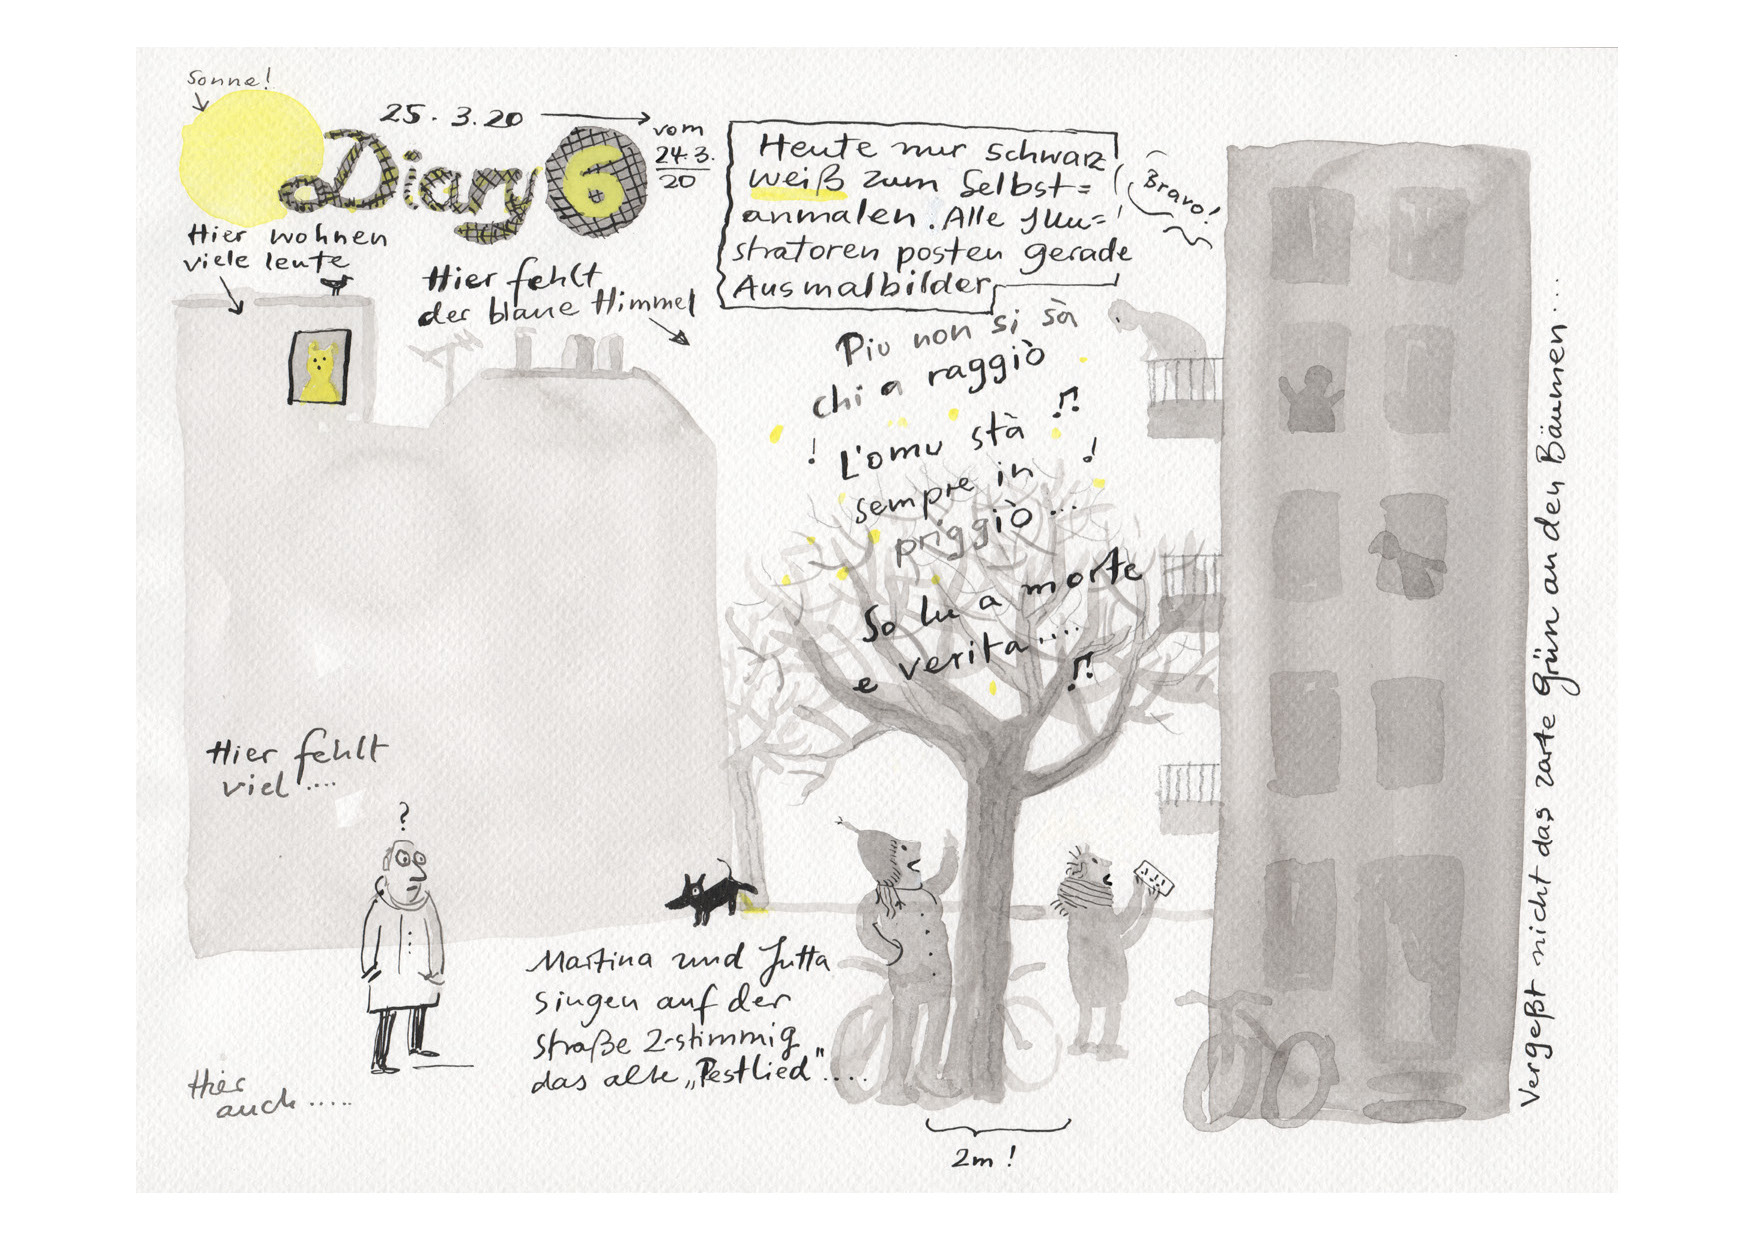 Sonne!
25.3.20
vom
24.3.
20
Diary 6
Heute nur schwarz
weiß zum Selbst=
anmalen! Alle Illu=
stratoren posten gerade
Ausmalbilder
Bravo!
Hier wohnen
viele leute
Hier fehlt
der blaue Himmel
Piu non si sà
chi a raggiò
!
L'omu stà
!
sempre in
priggiò...
So lu a morte
e verita....
Hier fehlt
viel ....
?
Martina und Jutta
singen auf der
straße 2-stimmig
das alte „Pestlied"....
Hier
auch.....
2m!
Vergeßt nicht das zarte Grün an den Bäumen...